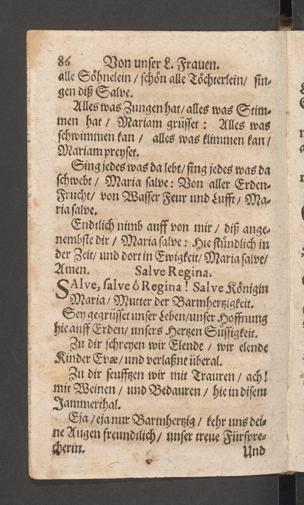 86 Von unser L. Frauen.
alle Söhnelein / schön alle Töchterlein / sin-
gen diß Salve.
Alles was Zungen hat / alles was Stim-
men hat / Mariam grüsset: Alles was
schwimmen kan / alles was klimmen kan /
Mariam preyset.
Sing jedes was da lebt / sing jedes was da
schwebt / Maria salve: Von aller Erden-
Frucht / von Wasser Feur und Lufft / Ma-
ria salve.
Endtlich nimb auff von mir / diß ange-
nembste dir / Maria salve: Hie stündlich in
der Zeit / und dort in Ewigkeit / Maria salve /
Amen. Salve Regina.
SAlve, salve ô Regina! Salve Königin
Maria / Mutter der Barmhertzigkeit.
Sey gegrüsset unser Leben / unser Hoffnung
hie auff Erden / unsers Hertzen Süssigkeit.
Zu dir schreyen wir Elende / wir elende
Kinder Evæ / und verlaßne überal.
Zu dir seufftzen wir mit Trauren / ach!
mit Weinen / und Bedauren / hie in disem
Jammerthal.
Eja / eja nur Barmhertzig / kehr uns dei-
ne Augen freundtlich / unser treue Fürspre-
cherin. Und